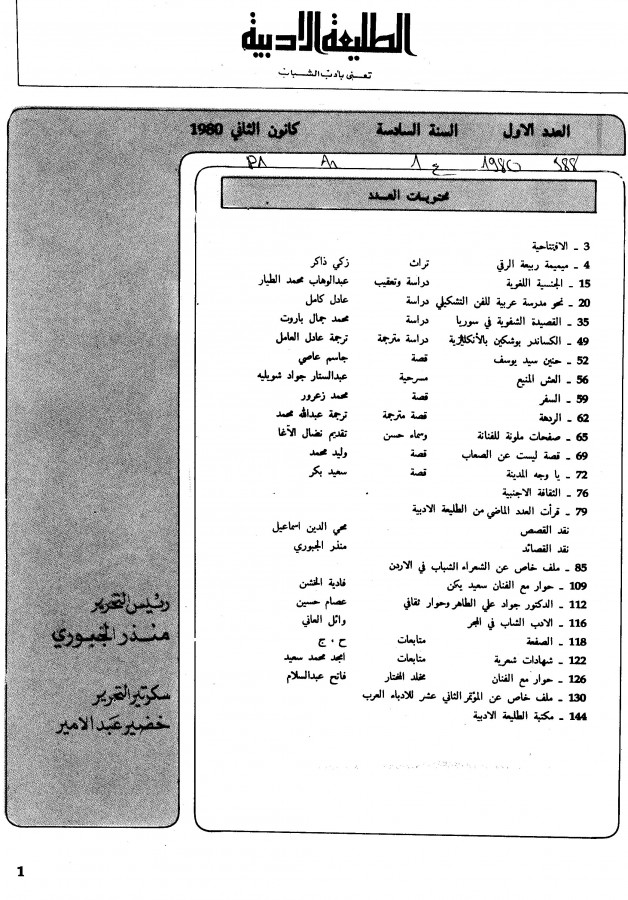 الطليعة الادبية
تعنى بأدب الشباب
العدد الاول السنة السادسة كانون الثاني 1980
محتويات العدد
3 ـ الافتتاحية
4 ـ ميمية ربيعة الرقي تراث زكي ذاكر
15 ـ الجنسية اللغوية دراسة وتعقيب عبدالوهاب محمد الطيار
20 ـ نحو مدرسة عربية للفن التشكيلي دراسة عادل كامل
35 ـ القصيدة الشفوية في سوريا دراسة محمد جمال باروت
49 ـ الكساندر بوشكين بالأنكليزية دراسة مترجمة ترجمة عادل العامل
52 ـ حنين سيد يوسف قصة جاسم عاصي
56 ـ العش المنيع مسرحية عبدالستار جواد شويليه
59 ـ السفر قصة محمد زعرور
62 ـ الردهة قصة مترجمة ترجمة عبدالله محمد
65 ـ صفحات ملونة للفنانة وسماء حسن تقديم نضال الأغا
69 ـ قصة ليست عن الصعاب قصة وليد محمد
72 ـ يا وجه المدينة قصة سعيد بكر
76 ـ الثقافة الاجنبية
79 ـ قرأت العدد الماضي من الطليعة الادبية
نقد القصص محي الدين اسماعيل
نقد القصائد منذر الجبوري
85 ـ ملف خاص عن الشعراء الشباب في الاردن
109 ـ حوار مع الفنان سعيد يكن فادية الخشن
112 ـ الدكتور جواد علي الطاهر وحوار ثقافي عصام حسين
116 ـ الادب الشاب في المجر وائل العاني
118 ـ الصفعة متابعات ح ٠ ج
122 ـ شهادات شعرية متابعات امجد محمد سعيد
126 ـ حوار مع الفنان مخلد المختار فاتح عبدالسلام
130 ـ ملف خاص عن المؤتمر الثاني عشر للادباء العرب
144 ـ مكتبة الطليعة الادبية
رئيس التحرير
منذر الجبوري
سكرتير التحرير
خضير عبد الامير
1